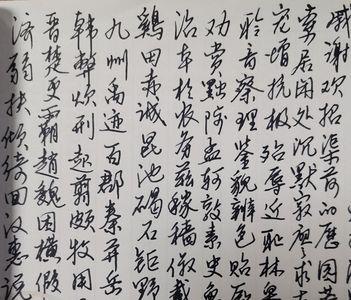 感谢欢招渠荷的历园莽
索居闲处沉默寂寥求古
宠增抗极殆辱近耻林皋
聆音察理鉴貌辨色贻厥
劝赏黜陟孟轲敦素史鱼
治本於农务兹稼穑俶载
鷄田赤诚昆池碣石钜野
九州禹迹百郡秦并岳
韩弊烦刑起翦颇牧用
晋楚更霸趙魏困横假
济弱扶倾绮回汉惠说